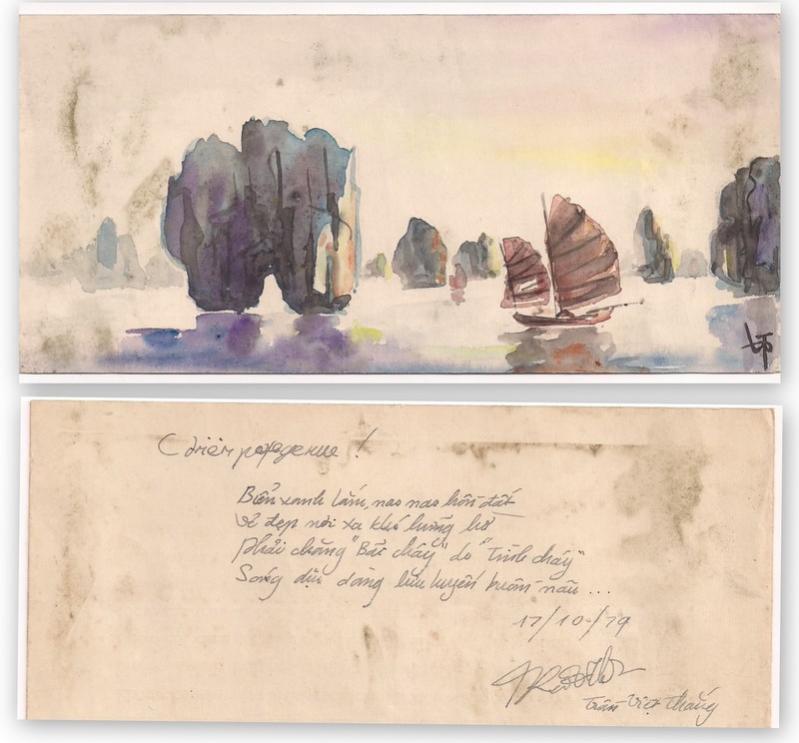 С днём рождение !
Biển xanh lắm, nao nao hồn đất
Vẻ đẹp nơi xa khó hững hờ
Phải chăng "Bãi cháy" do "tình cháy"
Sóng dịu dàng lưu luyến buồn ...
17/10-/79
Trần Việt Thắng